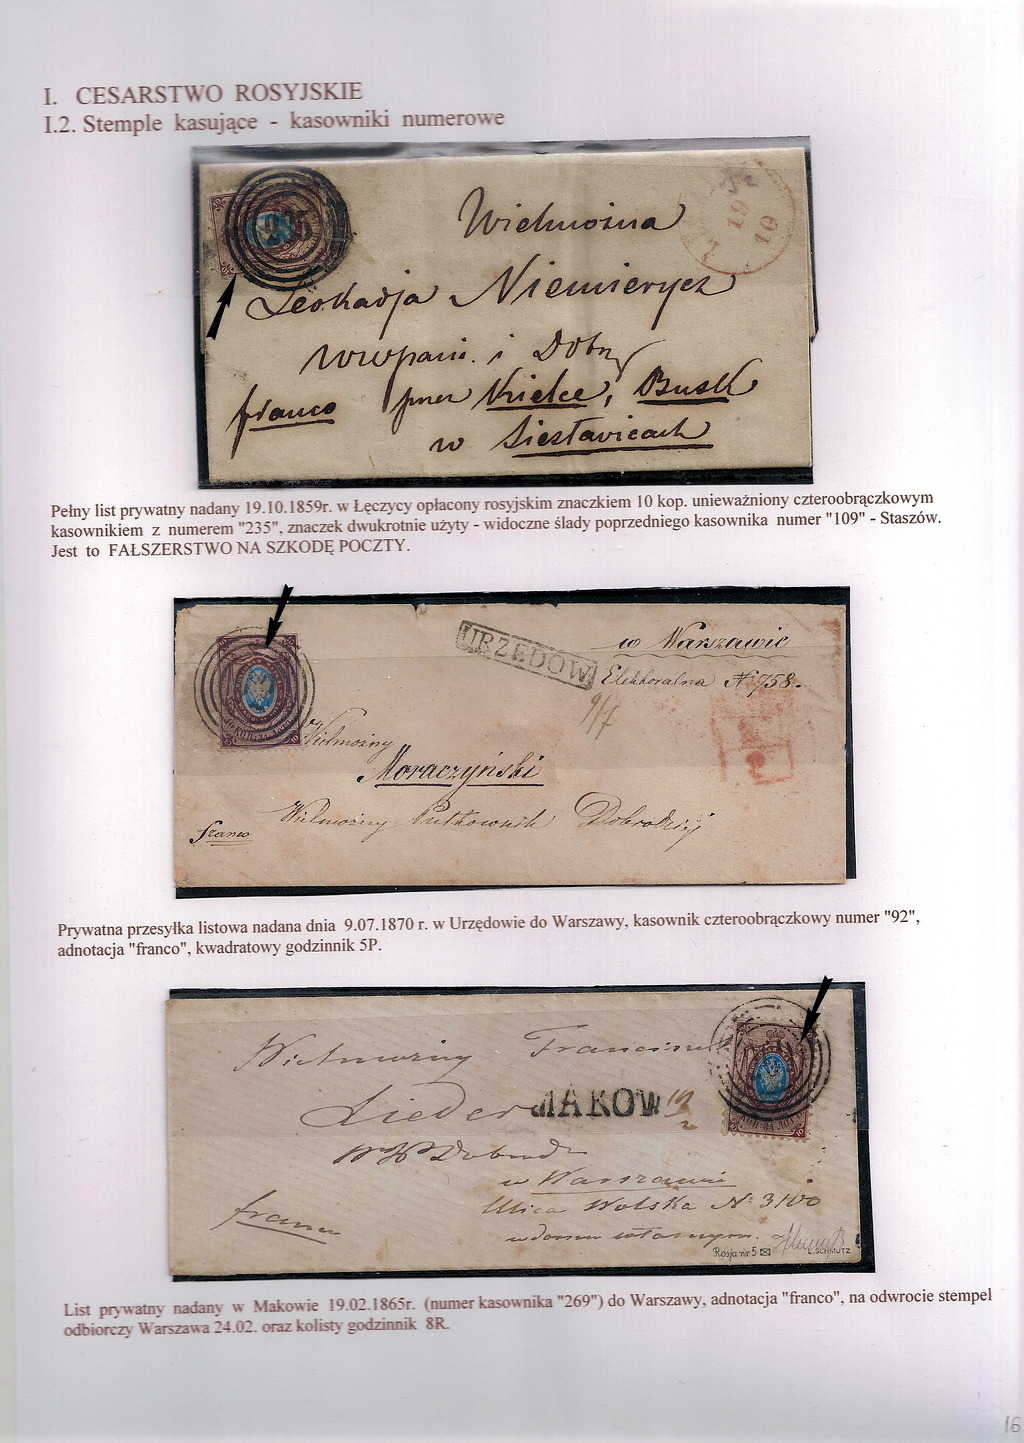 I. CESARSTWO ROSYJSKIE
I.2. Stemple kasujące - kasowniki numerowe
235
19
10
Wielmożna
Leokadja Niemierycz
i Dobr
franco przez Kielce, Busk
w Siesławicach
Pełny list prywatny nadany 19.10.1859r. w Łęczycy opłacony rosyjskim znaczkiem 10 kop. unieważniony czteroobrączkowym
kasownikiem z numerem "235", znaczek dwukrotnie użyty - widoczne ślady poprzedniego kasownika numer "109" - Staszów.
Jest to FAŁSZERSTWO NA SZKODĘ POCZTY.
URZĘDÓW
w Warszawie
Elektoralna N 758.
9/7
Wielmożny
Moraczyński
Wielmożny Pułkownik Dobrodziej
franco
Prywatna przesyłka listowa nadana dnia 9.07.1870 r. w Urzędowie do Warszawy, kasownik czteroobrączkowy numer "92",
adnotacja "franco", kwadratowy godzinnik 5P.
Wielmożny Franciszek
MAKOW
19/2
Lieder
WP Dobrodz
w Warszawie
Ulica Wolska N: 3100
w domu własnym.
franco
Rosja nr 5
L. SCHMUTZ
List prywatny nadany w Makowie 19.02.1865r. (numer kasownika "269") do Warszawy, adnotacja "franco", na odwrocie stempel
odbiorczy Warszawa 24.02. oraz kolisty godzinnik 8R.
16